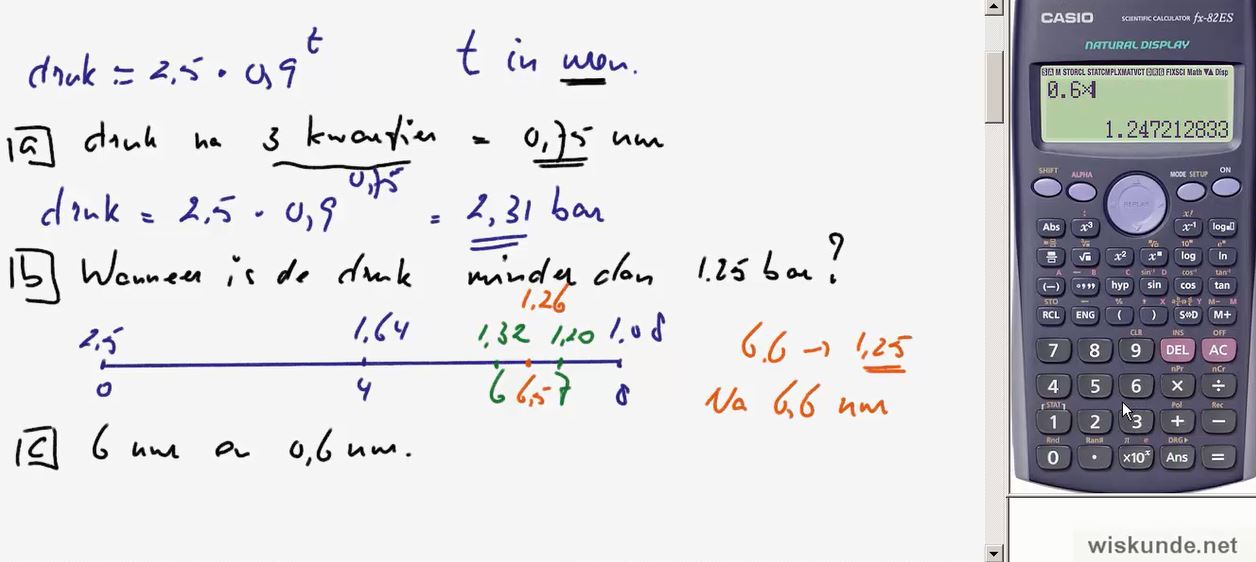 druk = 2,5 · 0,9^t t in uren.
1a druk na 3 kwartier = 0,75 uur
druk = 2,5 · 0,9^0,75 = 2,31 bar
1b Wanneer is de druk minder dan 1.25 bar?
1,26
2,5 1,64 1,32 1,20 1,08
0 4 6 6,5 7 8
6.6 → 1,25
Na 6,6 uur
1c 6 uur en 0,6 uur.
CASIO SCIENTIFIC CALCULATOR fx-82ES
NATURAL DISPLAY
0.6×
1.247212833
SHIFT ALPHA REPLAY MODE SETUP ON
Abs x³ x⁻¹ log□
√ x² x^■ log ln
(−) °,,, hyp sin cos tan
RCL ENG ( ) S⇔D M+
7 8 9 DEL AC
4 5 6 × ÷
1 2 3 + −
0 · ×10ˣ Ans =
wiskunde.net